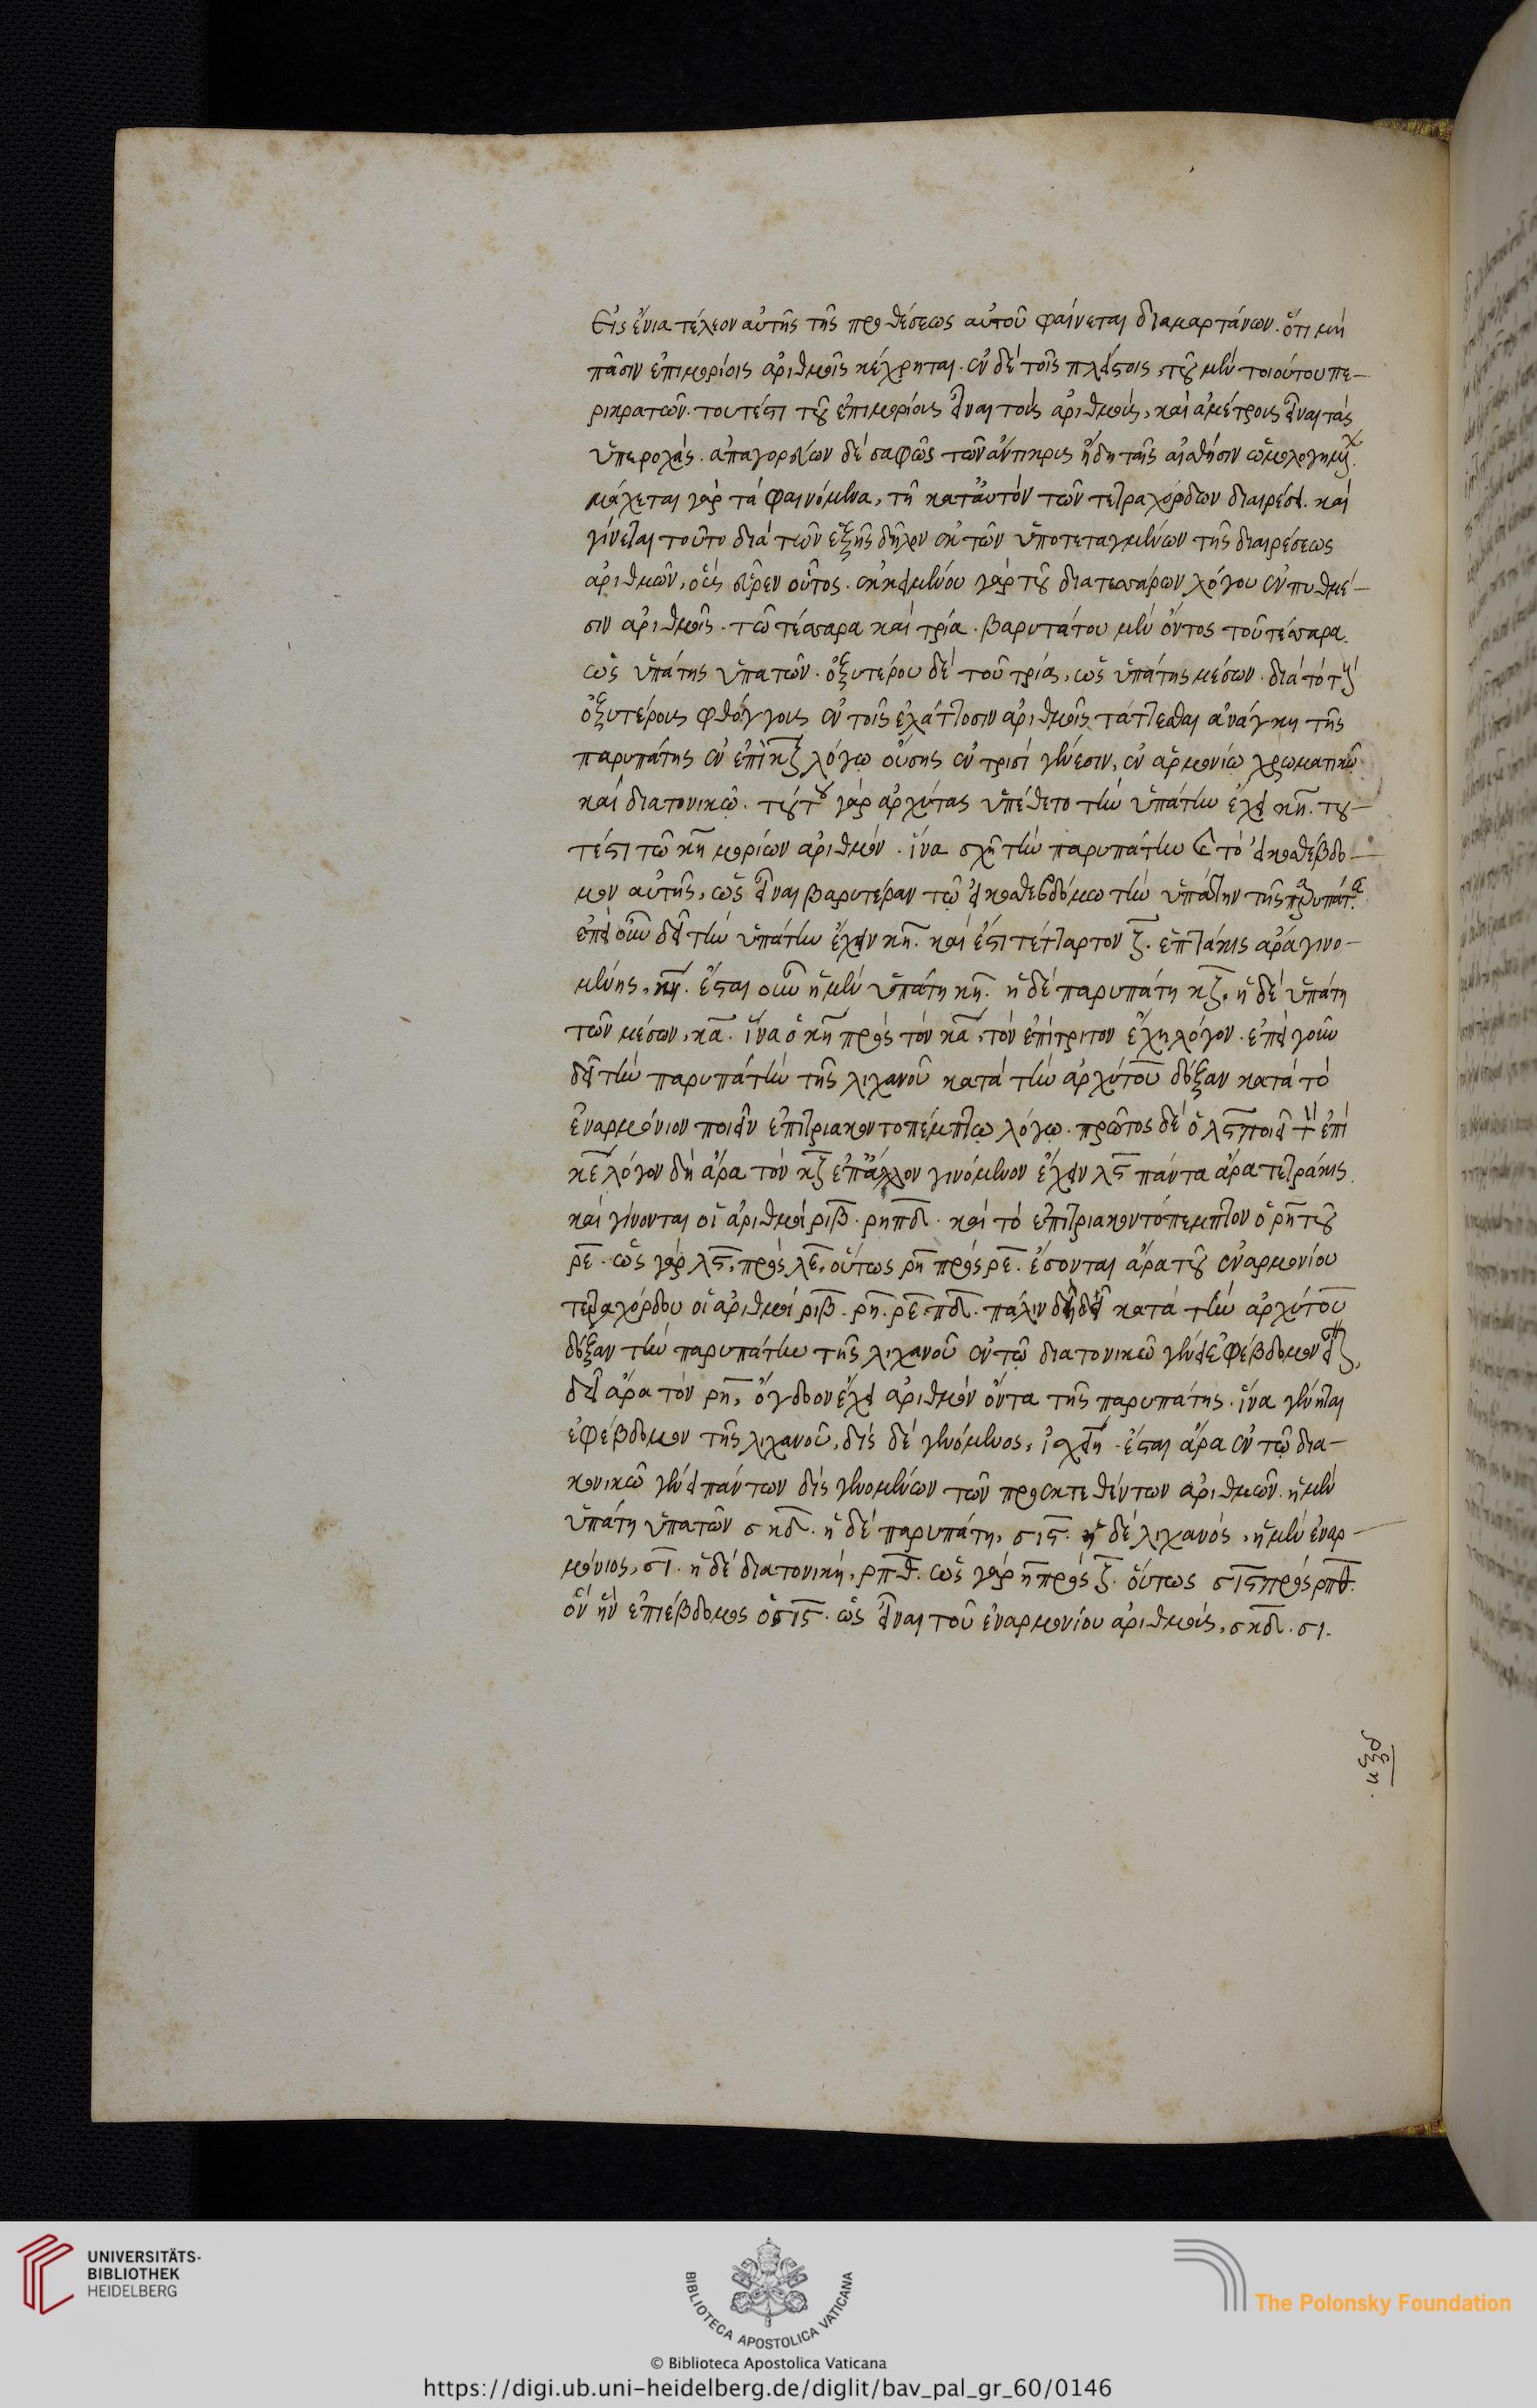 Εἰς ἔνια τέλεον αὐτῆς τῆς προθέσεως αὐτοῦ φαίνεται διαμαρτάνων. ὅτι μὴ
πᾶσιν ἐπιμορίοις ἀριθμοῖς κέχρηται. ἐν δὲ τοῖς πλείστοις, τοῦ μὲν τοιούτου πε-
ρικρατῶν. τουτέστι τοῦ ἐπιμορίους εἶναι τοὺς ἀριθμούς, καὶ ἀμέτρους εἶναι τὰς
ὑπεροχάς. ἀπαγορεύων δὲ σαφῶς τῶν ἄντικρις ἤδη ταῖς αἰσθήσιν
μάχεται γὰρ τὰ φαινόμενα, τῇ κατ' αὐτὸν τῶν τετραχόρδων διαιρέσει. καὶ
γίνεται τοῦτο διὰ τῶν ἑξῆς δῆλον ἐκ τῶν ὑποτεταγμένων τῆς διαιρέσεως
ἀριθμῶν, οὓς εὗρεν οὗτος. ἐκκειμένου γὰρ τοῦ διατεσσάρων λόγου ἐν πυθμέ-
σιν ἀριθμοῖς. τῶ τέσσαρα καὶ τρία. βαρυτάτου μὲν ὄντος τοῦ τέσσαρα.
ὡς ὑπάτης ὑπατῶν. ὀξυτέρου δὲ τοῦ τρία, ὡς ὑπάτης μέσων. διὰ τὸ τοὺς
ὀξυτέρους φθόγγους ἐν τοῖς ἐλάττοσιν ἀριθμοῖς τάττεσθαι ἀνάγκη τῆς
παρυπάτης ἐν ἐπὶ κζ λόγῳ οὔσης ἐν τρισὶ γένεσιν, ἐν ἁρμονίῳ χρωματικῷ
καὶ διατονικῷ. τούτου γὰρ ἀρχύτας ὑπέθετο τὴν ὑπάτην ἔχει κη. του-
τέστι τῶ κη μορίων ἀριθμόν. ἵνα σχῇ τὴν παρυπάτην καὶ τὸ εἰκοσθέβδο-
μον αὐτῆς, ὡς εἶναι βαρυτέραν τῷ εἰκοσθεβδόμω τὴν ὑπάτην τῆς παρυπάτ.
ἐπεὶ οὖν δεῖ τὴν ὑπάτην ἔχειν κη. καὶ ἔστι τέτταρτον ζ. ἑπτάκις ἄρα γινο-
μένης, κη. ἔσται οὖν ἡ μὲν ὑπάτη κη. ἡ δὲ παρυπάτη κζ. ἡ δὲ ὑπάτη
τῶν μέσων, κα. ἵνα ὁ κη πρὸς τὸν κα, τὸν ἐπίτριτον ἔχῃ λόγον. ἐπεὶ γοῦν
δεῖ τὴν παρυπάτην τῆς λιχανοῦ κατὰ τὴν ἀρχύτου δόξαν κατὰ τὸ
ἐναρμόνιον ποιεῖν ἐπιτριακοντοπέμπτῳ λόγῳ. πρῶτος δὲ ὁ λς ποιεῖ τὸν ἐπὶ
κε λόγον δὴ ἄρα τὸν κζ ἐπ' ἄλλον γινόμενον ἔχειν λς πάντα ἄρα τετράκις.
καὶ γίνονται οἱ ἀριθμοὶ ριβ. ρη πδ. καὶ τὸ ἐπιτριακοντόπεμπτον ὁ ρη τοῦ
ρε. ὡς γὰρ λς, πρὸς λε, οὕτως ρη πρὸς ρε. ἔσονται ἄρα τοῦ ἐναρμονίου
τετραχόρδου οἱ ἀριθμοὶ ριβ. ρη. ρε. πδ. πάλιν κατὰ τὴν ἀρχύτου
δόξαν τὴν παρυπάτην τῆς λιχανοῦ ἐν τῷ διατονικῷ γένει ἐφέβδομον
δεῖ ἄρα τὸν ρη, ὄγδοον ἔχει ἀριθμὸν ὄντα τῆς παρυπάτης. ἵνα γένηται
ἐφέβδομον τῆς λιχανοῦ, δὶς δὲ γενόμενος, ἔσται ἄρα ἐν τῷ δια-
κονικῷ γένει πάντων δὶς γενομένων τῶν προεκτεθέντων ἀριθμῶν. ἡ μὲν
ὑπάτη ὑπατῶν σκδ. ἡ δὲ παρυπάτη, σις. ἡ δὲ λιχανὸς, ἡ μὲν ἐναρ-
μόνιος, σι. ἡ δὲ διατονική, ρπθ. ὡς γὰρ η πρὸς ζ. οὕτως σις πρὸς ρπθ.
ὃν ἦν ἐπιέβδομος ὁ σις. ὡς εἶναι τοῦ ἐναρμονίου ἀριθμούς, σκδ. σι.
UNIVERSITÄTS-
BIBLIOTHEK
HEIDELBERG
BIBLIOTECA APOSTOLICA VATICANA
The Polonsky Foundation
© Biblioteca Apostolica Vaticana
https://digi.ub.uni-heidelberg.de/diglit/bav_pal_gr_60/0146